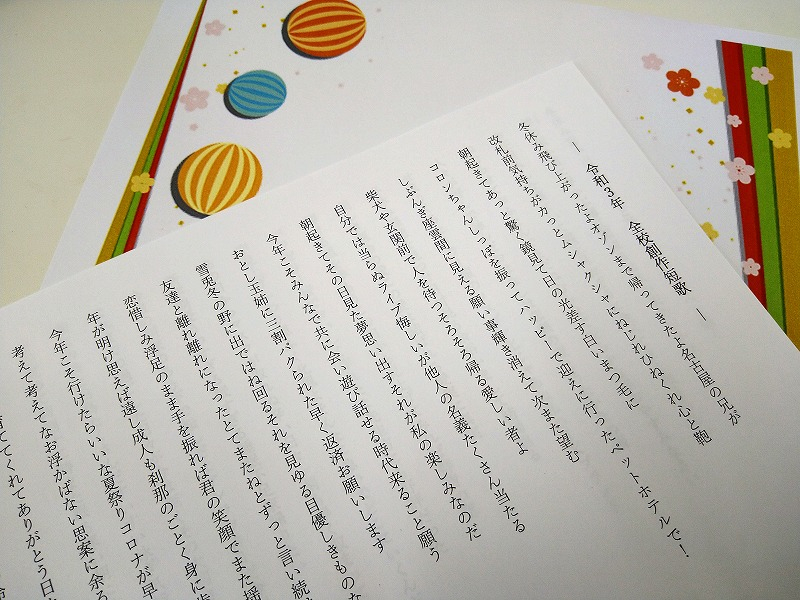 ― 令和３年 全校創作短歌 ―
冬休み飛び上がったよオゾンまで帰ってきたよ名古屋の兄が
改札前気持ちがカっとムシャクシャにねじれひねくれ心と鞄
朝起きてあっと驚く鏡見て日の光差す白いまつ毛に
コロンちゃんしっぽを振ってハッピーで迎えに行ったペットホテルで！
しぶんぎ座雲間に見える願い事輝き消えて次また望む
柴犬や玄関前で人を待つそろそろ帰る愛しい者よ
自分では当らぬライブ悔しいが他人の名義たくさん当たる
朝起きてその日見た夢思い出すそれが私の楽しみなのだ
今年こそみんなで共に会い遊び話せる時代来ること願う
おとし玉姉に三割パクられた早く返済お願いします
雪兎冬の野に出ではね回るそれを見ゆる目優しきものな
友達と離れ離れになったとてまたねとずっと言い続
恋惜しみ浮足のまま手を振れば君の笑顔でまた
年が明け思えば遠し成人も刹那のごとく身に
今年こそ行けたらいいな夏祭りコロナが早
考えて考えてなお浮かばない思案に余
育ててくれてありがとう日